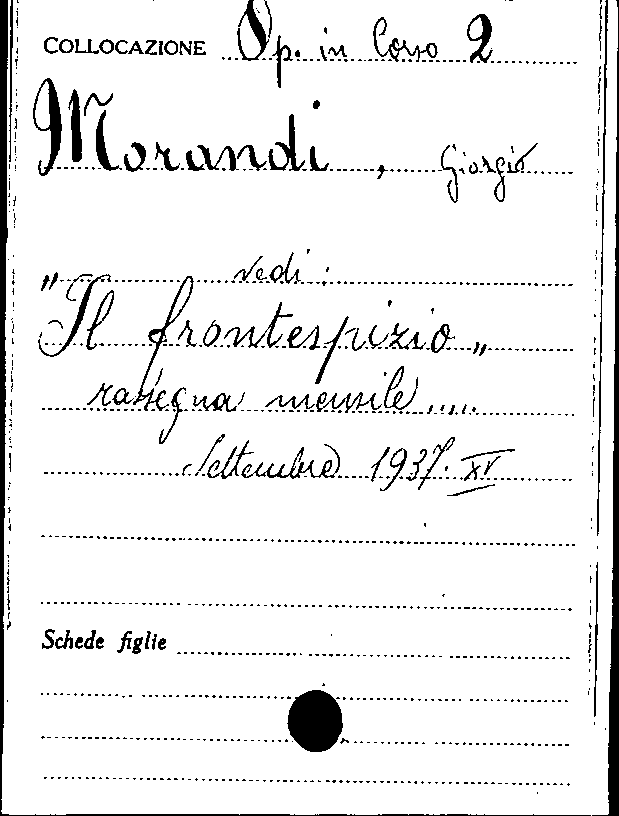 COLLOCAZIONE Op. in Corso 2
Morandi, Giorgio
vedi:
"Il frontespizio„
rassegna mensile.....
Settembre 1937. XV
Schede figlie